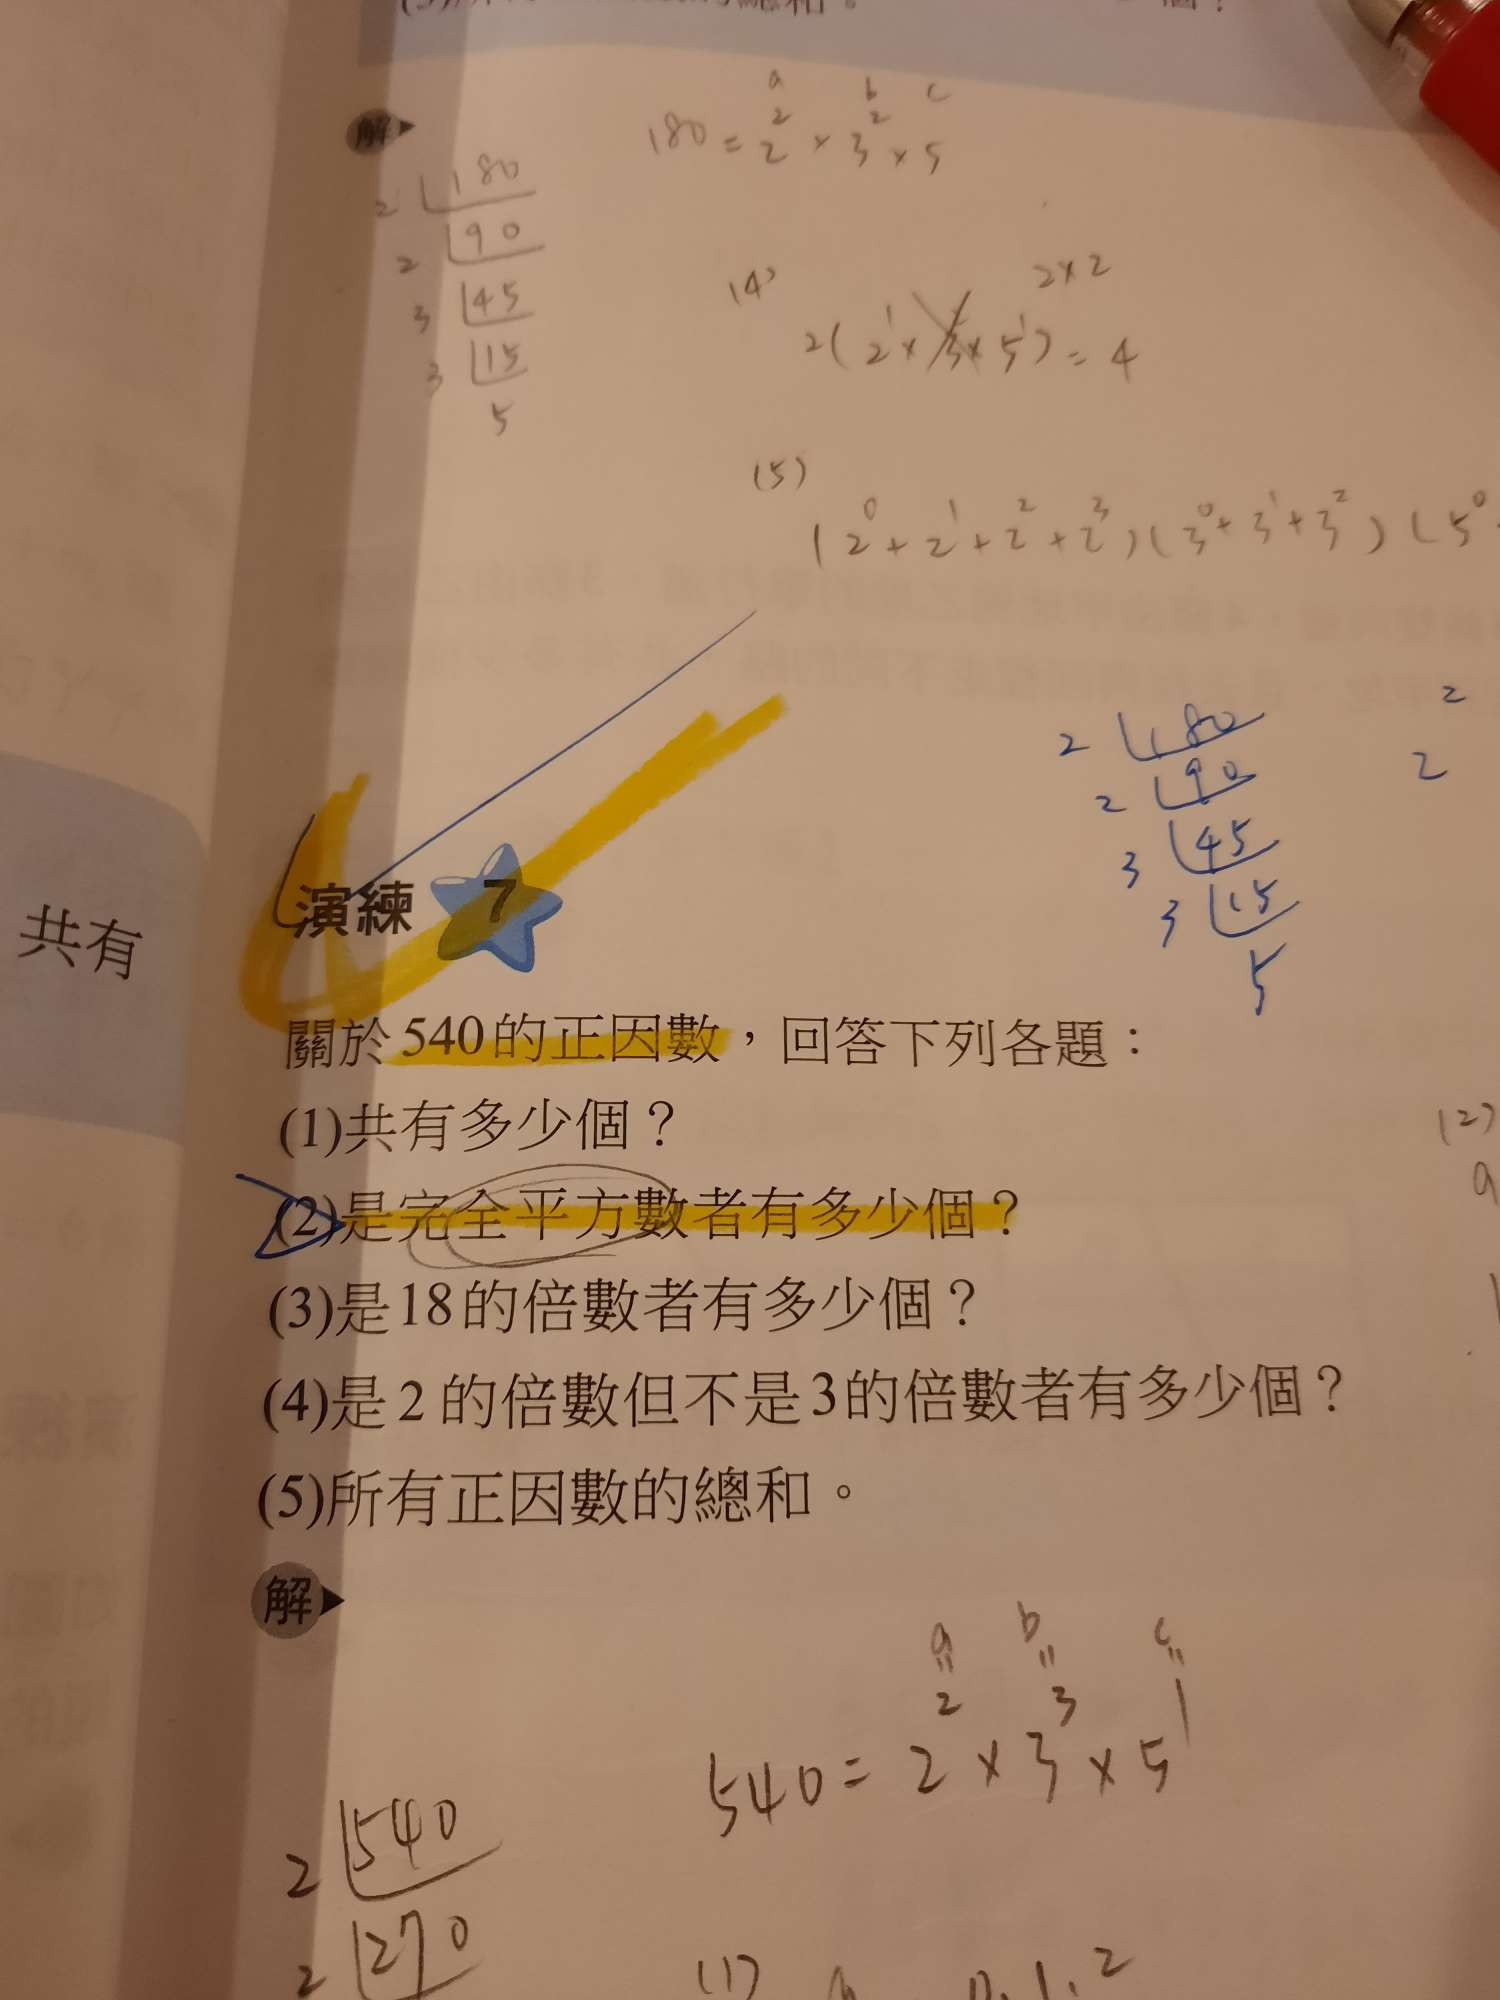 的總和。
個？
解
a b c
180 = 2² × 3² × 5
2 180
2 90
3 45
3 15
5
(4)
2×2
2(2¹× ×5¹) = 4
(5)
(2⁰+2¹+2²+2³)(3⁰+3¹+3²)(5⁰
2 180
2 90
3 45
3 15
5
2
2
共有
演練 7
關於540的正因數，回答下列各題：
(1)共有多少個？
(2)是完全平方數者有多少個？
(3)是18的倍數者有多少個？
(4)是2的倍數但不是3的倍數者有多少個？
(5)所有正因數的總和。
(2)
a
解
a b c
= = =
540 = 2² × 3³ × 5¹
2 540
2 270
(1) 0,1,2